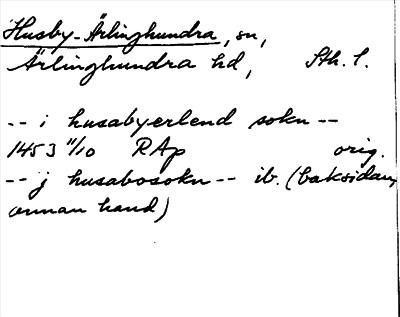 Husby-Ärlinghundra, sn,
Ärlinghundra hd, Sth. l.
-- i husabyerlend sokn --
1453 11/10 RAp orig.
-- j husabosokn -- ib. (baksidan,
annan hand)